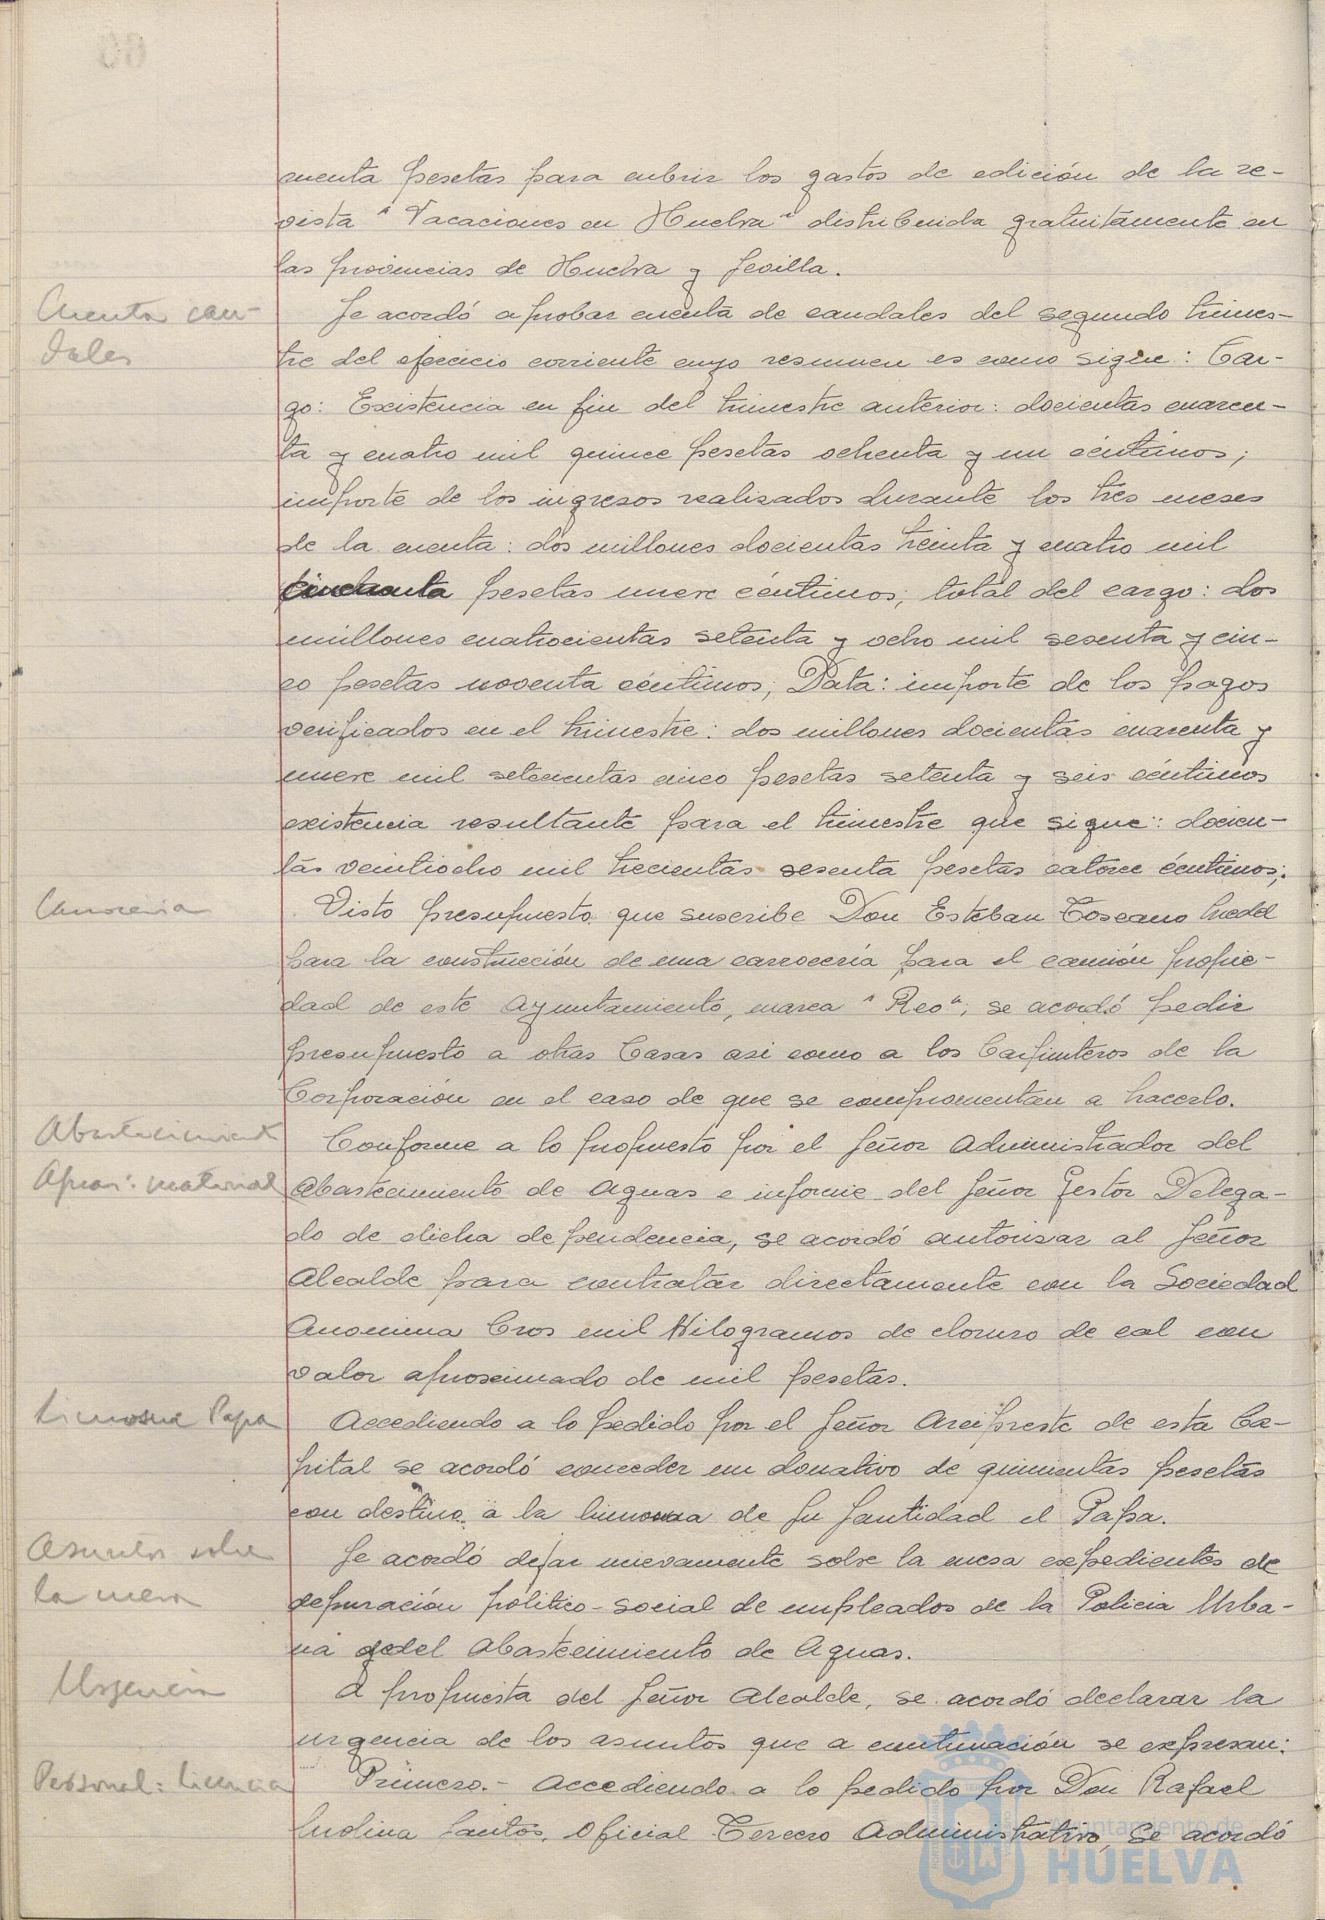 cuenta pesetas para cubrir los gastos de edición de la re-
vista "Vacaciones en Huelva" distribuida gratuitamente en
las provincias de Huelva y Sevilla.
Cuenta cau-
dales
Se acordó aprobar cuenta de caudales del segundo trimes-
tre del ejercicio corriente cuyo resumen es como sigue: Car-
go: Existencia en fin del trimestre anterior: docientas cuaren-
ta y cuatro mil quince pesetas ochenta y un céntimos;
importe de los ingresos realizados durante los tres meses
de la cuenta: dos millones docientas treinta y cuatro mil
cincuenta pesetas nueve céntimos; total del cargo: dos
millones cuatrocientas setenta y ocho mil sesenta y cin-
co pesetas noventa céntimos; Data: importe de los pagos
verificados en el trimestre: dos millones docientas cuarenta y
nueve mil setecientas cinco pesetas setenta y seis céntimos
existencia resultante para el trimestre que sigue: docien-
tas veintiocho mil trecientas sesenta pesetas catorce céntimos;
Carrocería
Visto presupuesto que suscribe Don Esteban Toscano
para la construcción de una carrocería para el camión propie-
dad de este Ayuntamiento, marca "Reo", se acordó pedir
presupuesto a otras Casas asi como a los Carpinteros de la
Corporación en el caso de que se compromentan a hacerlo.
Abastecimient
Aguas: material
Conforme a lo propuesto por el Señor Administrador del
Abastecimiento de Aguas e informe del Señor Gestor Delega-
do de dicha dependencia, se acordó autorizar al Señor
Alcalde para contratar directamente con la Sociedad
Anonima Cros mil Kilogramos de cloruro de cal con
valor aproximado de mil pesetas.
Limosna Papa
Accediendo a lo pedido por el Señor Arcipreste de esta Ca-
pital se acordó conceder un donativo de quinientas pesetas
con destino a la limosna de Su Santidad el Papa.
Asuntos sobre
la mesa
Se acordó dejar nuevamente sobre la mesa expedientes de
depuración politico-social de empleados de la Policia Urba-
na y del Abastecimiento de Aguas.
Urgencia
A propuesta del Señor Alcalde, se acordó declarar la
urgencia de los asuntos que a continuación se expresan:
Personal: licencia
Primero.- Accediendo a lo pedido por Don Rafael
Molina Santos, Oficial Tercero Administrativo, se acordó
Ayuntamiento de
HUELVA